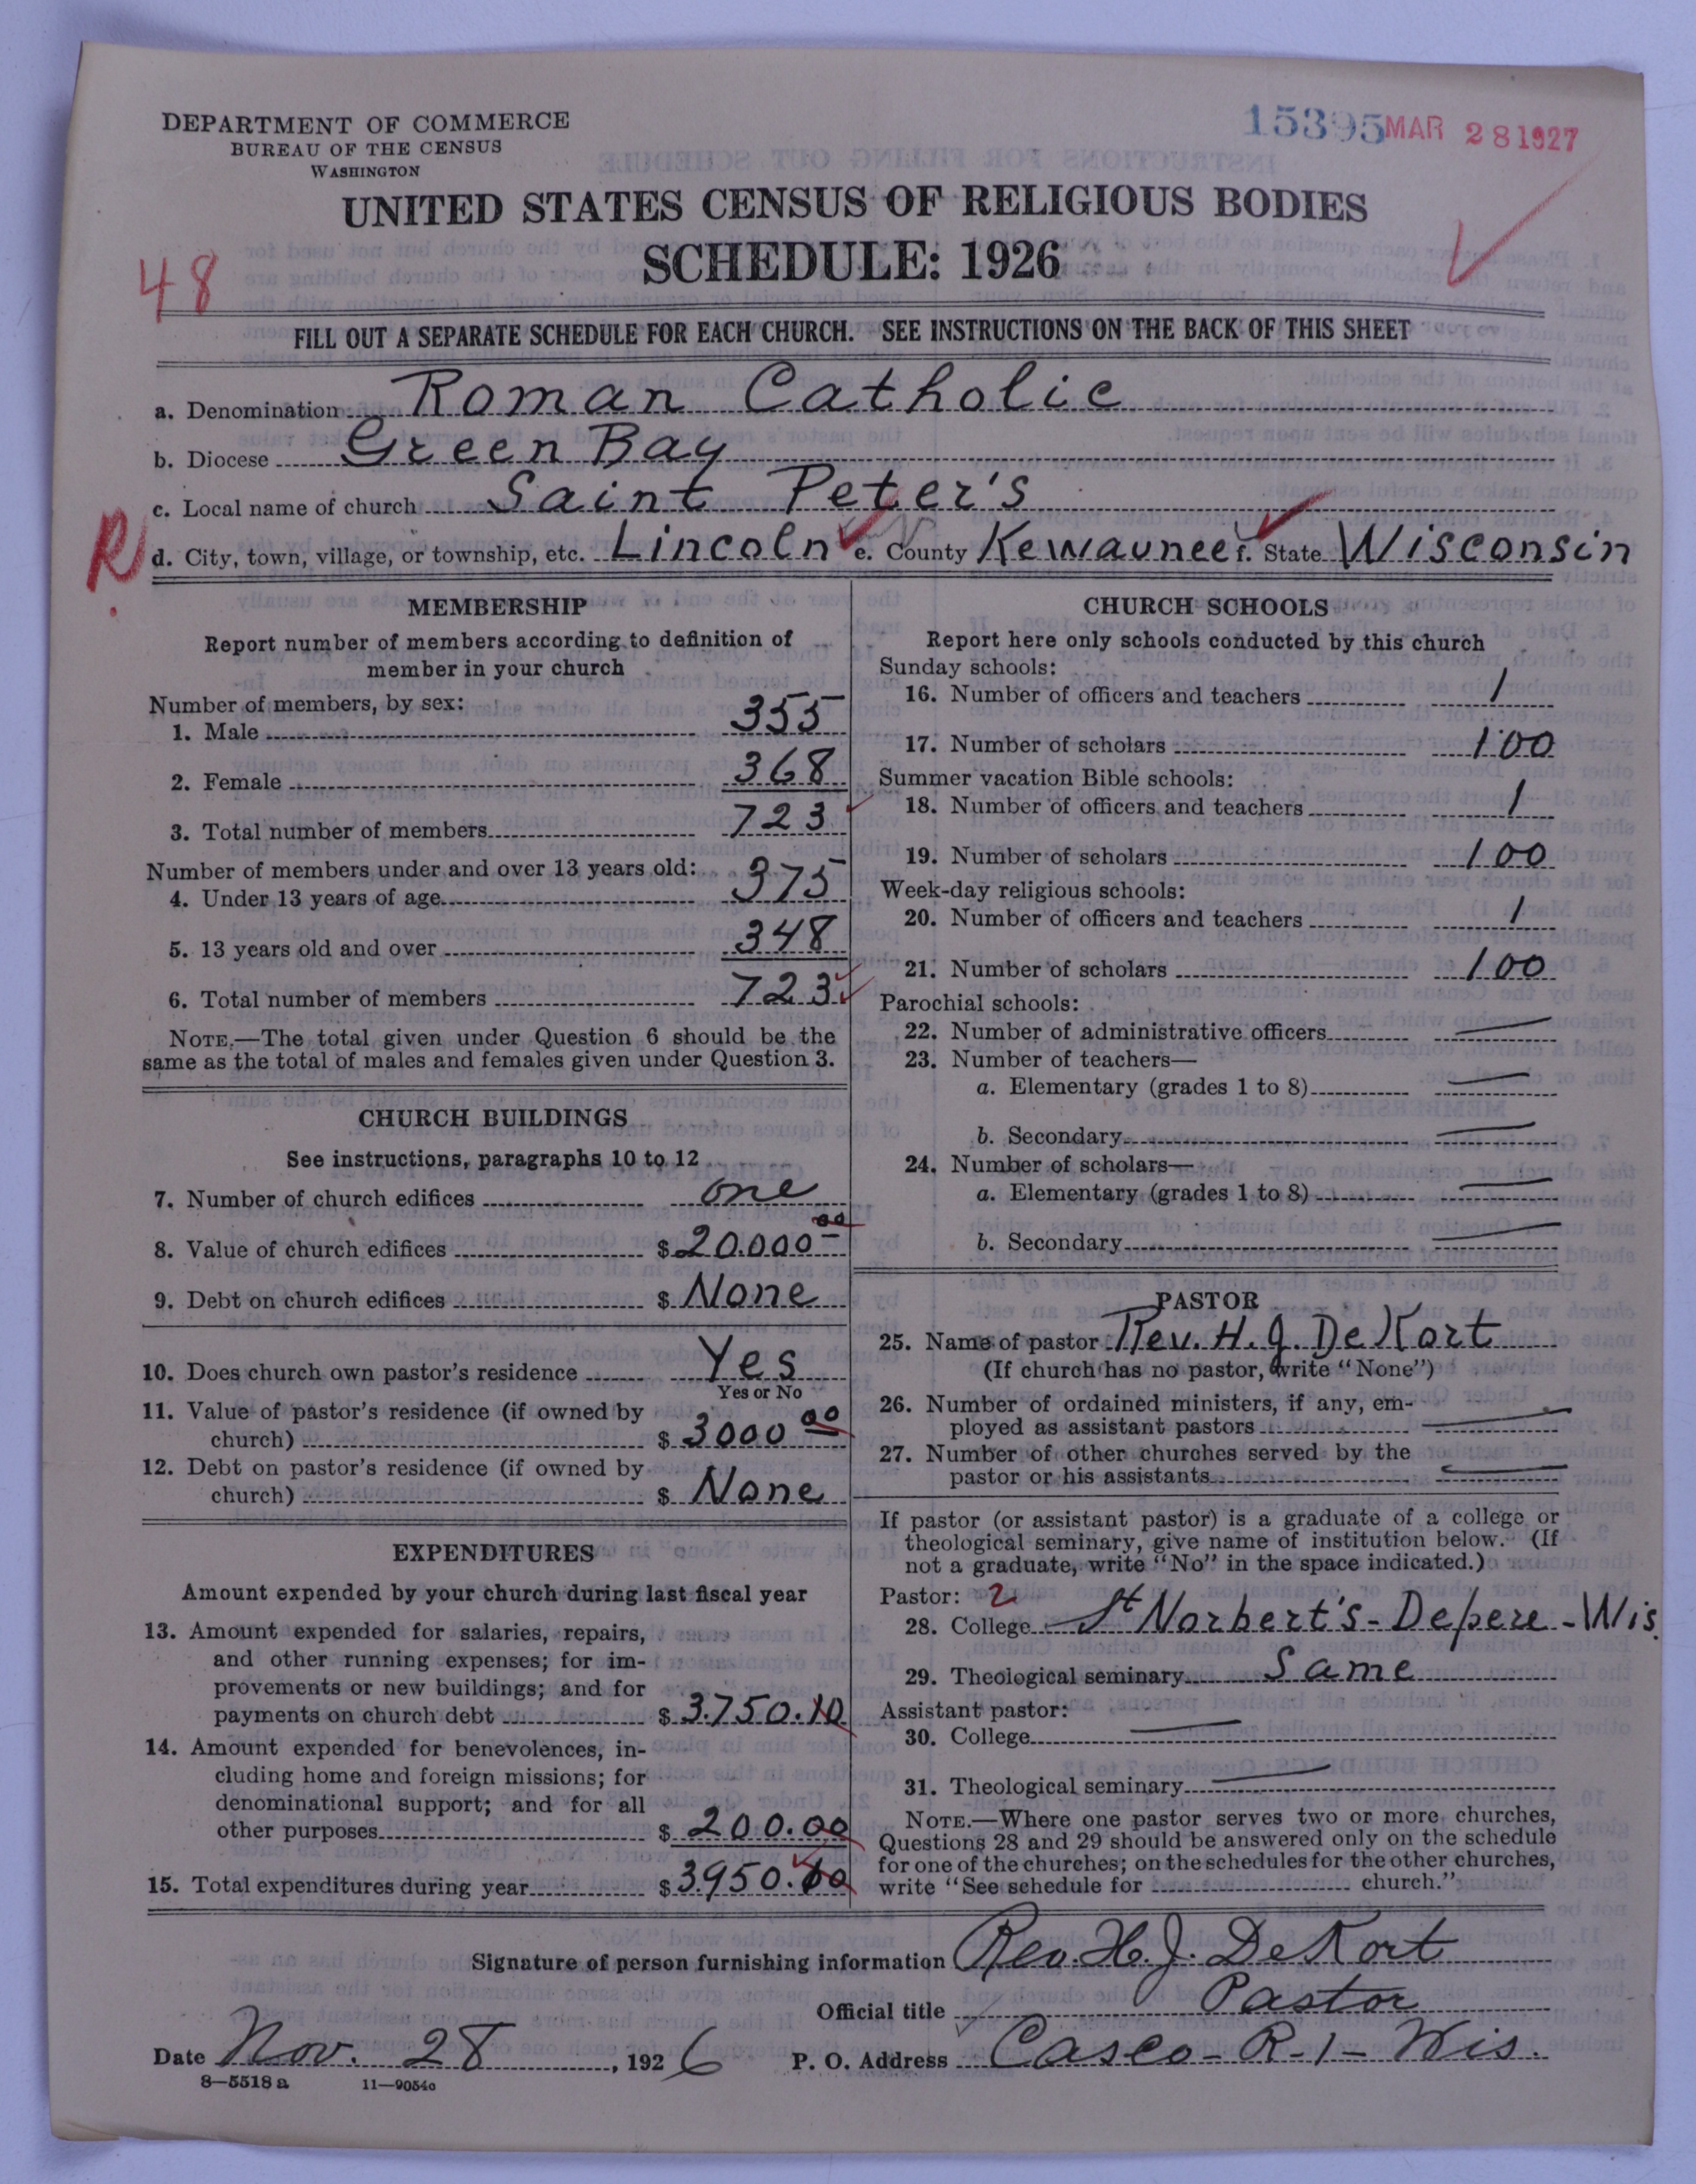 DEPARTMENT OF COMMERCE
BUREAU OF THE CENSUS
WASHINGTON
15395 MAR 28 1927
UNITED STATES CENSUS OF RELIGIOUS BODIES
SCHEDULE: 1926
48
FILL OUT A SEPARATE SCHEDULE FOR EACH CHURCH. SEE INSTRUCTIONS ON THE BACK OF THIS SHEET
a. Denomination Roman Catholic
b. Diocese Green Bay
c. Local name of church Saint Peter's
R d. City, town, village, or township, etc. Lincoln e. County Kewaunee f. State Wisconsin
MEMBERSHIP
Report number of members according to definition of
member in your church
Number of members, by sex:
1. Male 355
2. Female 368
3. Total number of members 723
Number of members under and over 13 years old:
4. Under 13 years of age 375
5. 13 years old and over 348
6. Total number of members 723
NOTE.—The total given under Question 6 should be the
same as the total of males and females given under Question 3.
CHURCH BUILDINGS
See instructions, paragraphs 10 to 12
7. Number of church edifices one
8. Value of church edifices $ 20.000 00
9. Debt on church edifices $ None
10. Does church own pastor's residence Yes
Yes or No
11. Value of pastor's residence (if owned by
church) $ 3000 00
12. Debt on pastor's residence (if owned by
church) $ None
EXPENDITURES
Amount expended by your church during last fiscal year
13. Amount expended for salaries, repairs,
and other running expenses; for im-
provements or new buildings; and for
payments on church debt $ 3.750.10
14. Amount expended for benevolences, in-
cluding home and foreign missions; for
denominational support; and for all
other purposes $ 200.00
15. Total expenditures during year $ 3950.10
CHURCH SCHOOLS
Report here only schools conducted by this church
Sunday schools:
16. Number of officers and teachers 1
17. Number of scholars 100
Summer vacation Bible schools:
18. Number of officers and teachers 1
19. Number of scholars 100
Week-day religious schools:
20. Number of officers and teachers 1
21. Number of scholars 100
Parochial schools:
22. Number of administrative officers
23. Number of teachers—
a. Elementary (grades 1 to 8)
b. Secondary
24. Number of scholars—
a. Elementary (grades 1 to 8)
b. Secondary
PASTOR
25. Name of pastor Rev. H. J. De Kort
(If church has no pastor, write "None")
26. Number of ordained ministers, if any, em-
ployed as assistant pastors
27. Number of other churches served by the
pastor or his assistants
If pastor (or assistant pastor) is a graduate of a college or
theological seminary, give name of institution below. (If
not a graduate, write "No" in the space indicated.)
Pastor: 2
28. College St Norbert's - Depere - Wis.
29. Theological seminary Same
Assistant pastor:
30. College
31. Theological seminary
NOTE.—Where one pastor serves two or more churches,
Questions 28 and 29 should be answered only on the schedule
for one of the churches; on the schedules for the other churches,
write "See schedule for church."
Signature of person furnishing information Rev. H. J. De Kort
Official title Pastor
Date Nov. 28, 1926 P. O. Address Casco - R. 1 - Wis.
8—5518 a 11—9054c